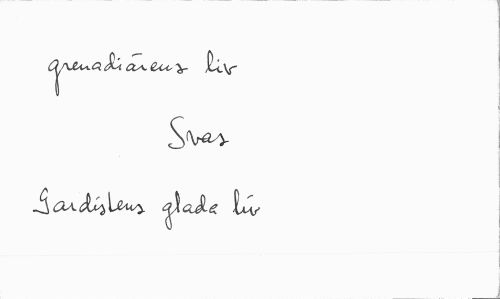 grenadiärens liv
Svas
Gardistens glada liv